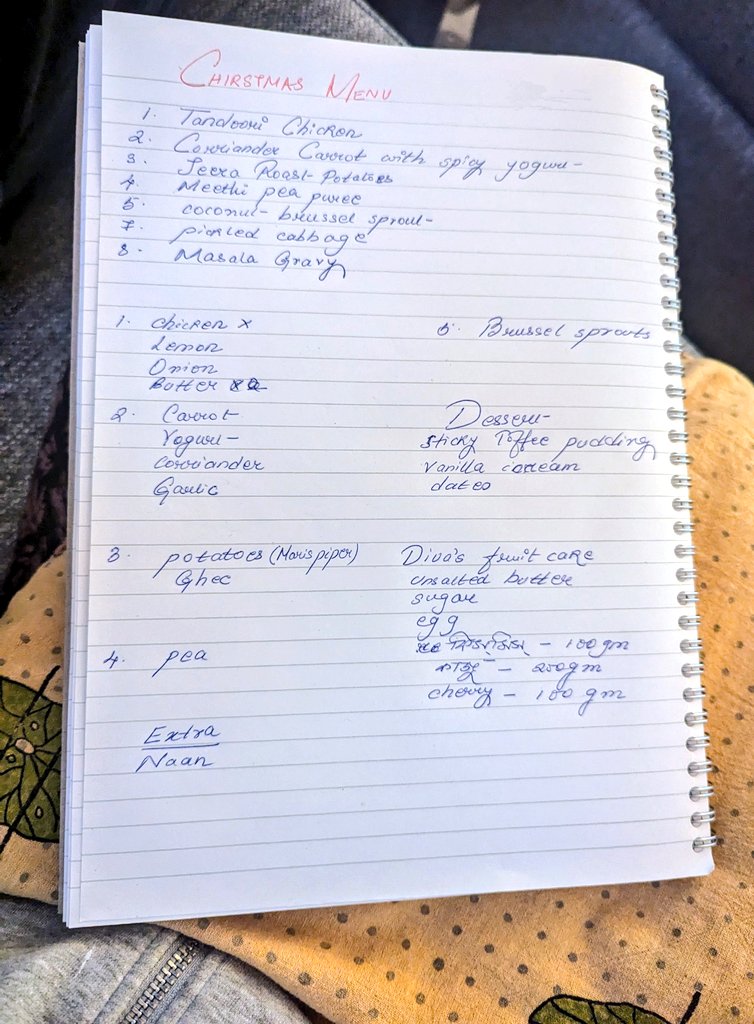 CHIRSTMAS MENU
1. Tandoori Chicken
2. Corriander Carrot with spicy yogurt
3. Jeera Roast Potatoes
4. Meethi pea puree
5. coconut brussel sprout
7. pickled cabbage
8. Masala Gravy
1. chicken x
Lemon
Onion
Butter
2. Carrot
Yogurt
corriander
Garlic
3. potatoes (Maris piper)
Ghee
4. pea
Extra
Naan
5. Brussel sprouts
Dessert
sticky Toffee pudding
vanilla
dates
Diva's fruit cake
unsalted butter
sugar
egg
– 100 gm
काजू – 200gm
cherry – 100 gm